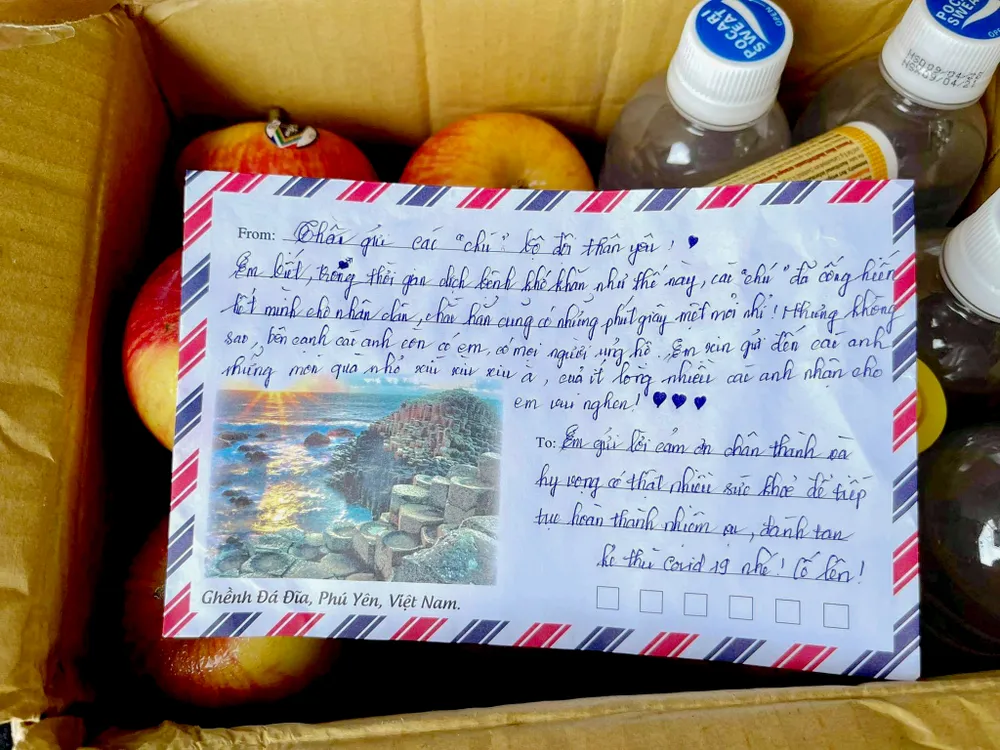 POCARI
SWEAT
POCARI
SWEAT
NSX09/04/21
From: Thân gửi các "chú" bộ đội thân yêu! ♥
Em biết, trong thời gian dịch bệnh khó khăn như thế này, các "chú" đã cống hiến
hết mình cho nhân dân, chắc hẳn cũng có những phút giây mệt mỏi nhỉ! Nhưng không
sao, bên cạnh các anh còn có em, có mọi người ủng hộ. Em xin gửi đến các anh
những món quà nhỏ xíu xìu xiu à, của ít lòng nhiều các anh nhận cho
em vui nghen! ♥♥♥
To: Em gửi lời cảm ơn chân thành và
hy vọng có thật nhiều sức khoẻ để tiếp
tục hoàn thành nhiệm vụ, đánh tan
kẻ thù covid 19 nhé! Cố lên!
Ghềnh Đá Đĩa, Phú Yên, Việt Nam.